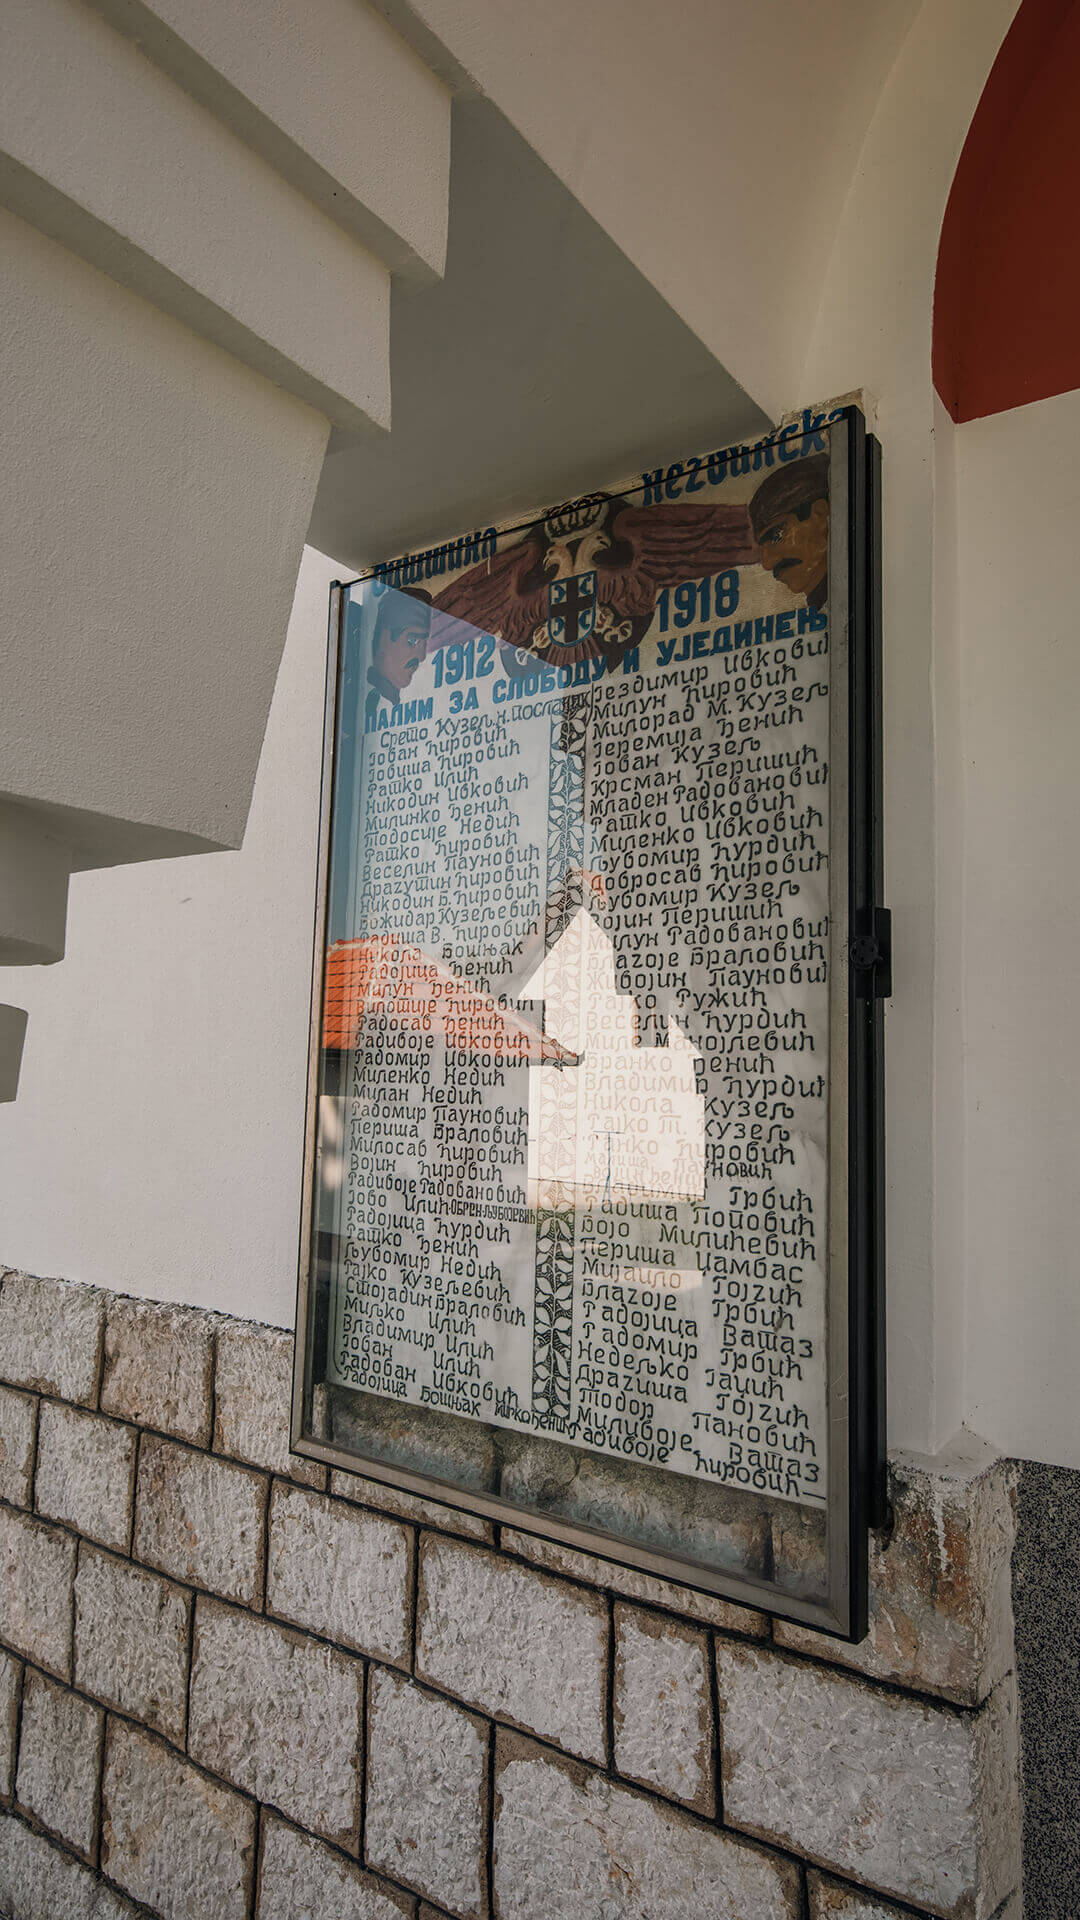 Општина Негбинска
1912 1918
ПАЛИМ ЗА СЛОБОДУ И УЈЕДИНЕЊ
Срето Кузељ.н.посланик
Јован Ћировић
Јовиша Ћировић
Ратко Илић
Никодин Ивковић
Милинко Ђенић
Тодосије Недић
Ратко Ћировић
Веселин Пауновић
Драгутин Ћировић
Никодин Б. Ћировић
Божидар Кузељевић
Радиша В. Ћировић
Никола Бошњак
Радојица Ђенић
Милун Ђенић
Вилотије Ћировић
Радосав Ђенић
Радивоје Ивковић
Радомир Ивковић
Миленко Недић
Милан Недић
Радомир Пауновић
Периша Браловић
Милосав Ћировић
Војин Ћировић
Радивоје Радовановић
Јово Илић-ОБРЕН.ЉУБОЈЕВИЋ
Радојица Ћурдић
Ратко Ђенић
Љубомир Недић
Рајко Кузељевић
Стојадин Браловић
Миљко Илић
Владимир Илић
Јован Илић
Радован Ивковић
Радојица Бошњак Мирко Ђенић
Јездимир Ивковић
Милун Ћировић
Милорад М. Кузељ
Јеремија Ђенић
Јован Кузељ
Крсман Перишић
Младен Радовановић
Ратко Ивковић
Миленко Ивковић
Љубомир Ћурдић
Добросав Ћировић
Љубомир Кузељ
Војин Перишић
Милун Радовановић
Благоје Браловић
Живојин Пауновић
Ратко Ружић
Веселин Ћурдић
Миле Манојлевић
Бранко Ђенић
Владимир Ћурдић
Никола Кузељ
Рајко Т. Кузељ
Ранко Ћировић
Малиша Пауновић
Војин Ђенић
Владимир Грбић
Радиша Поповић
Бојо Милићевић
Периша Џамбас
Мијаило Гојгић
Благоје Грбић
Радојица Ваташ
Радомир Грбић
Недељко Јачић
Драгиша Гојгић
Тодор Пановић
Миливоје Ваташ
Радивоје Ћировић